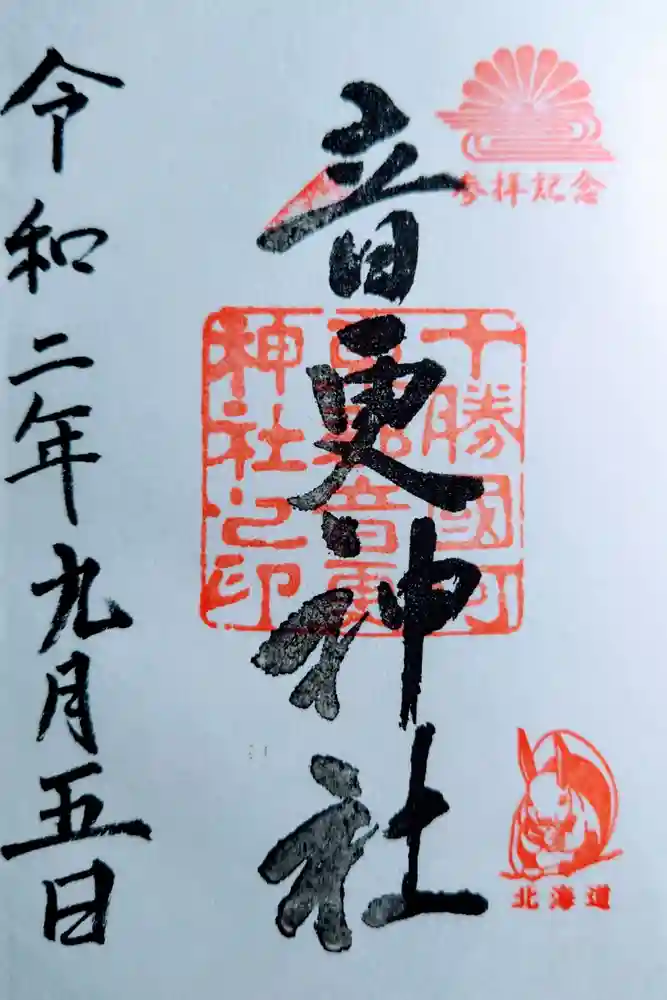 參拝記念
音更神社
十勝國河
東郡音更
神社之印
北海道
令和二年九月五日